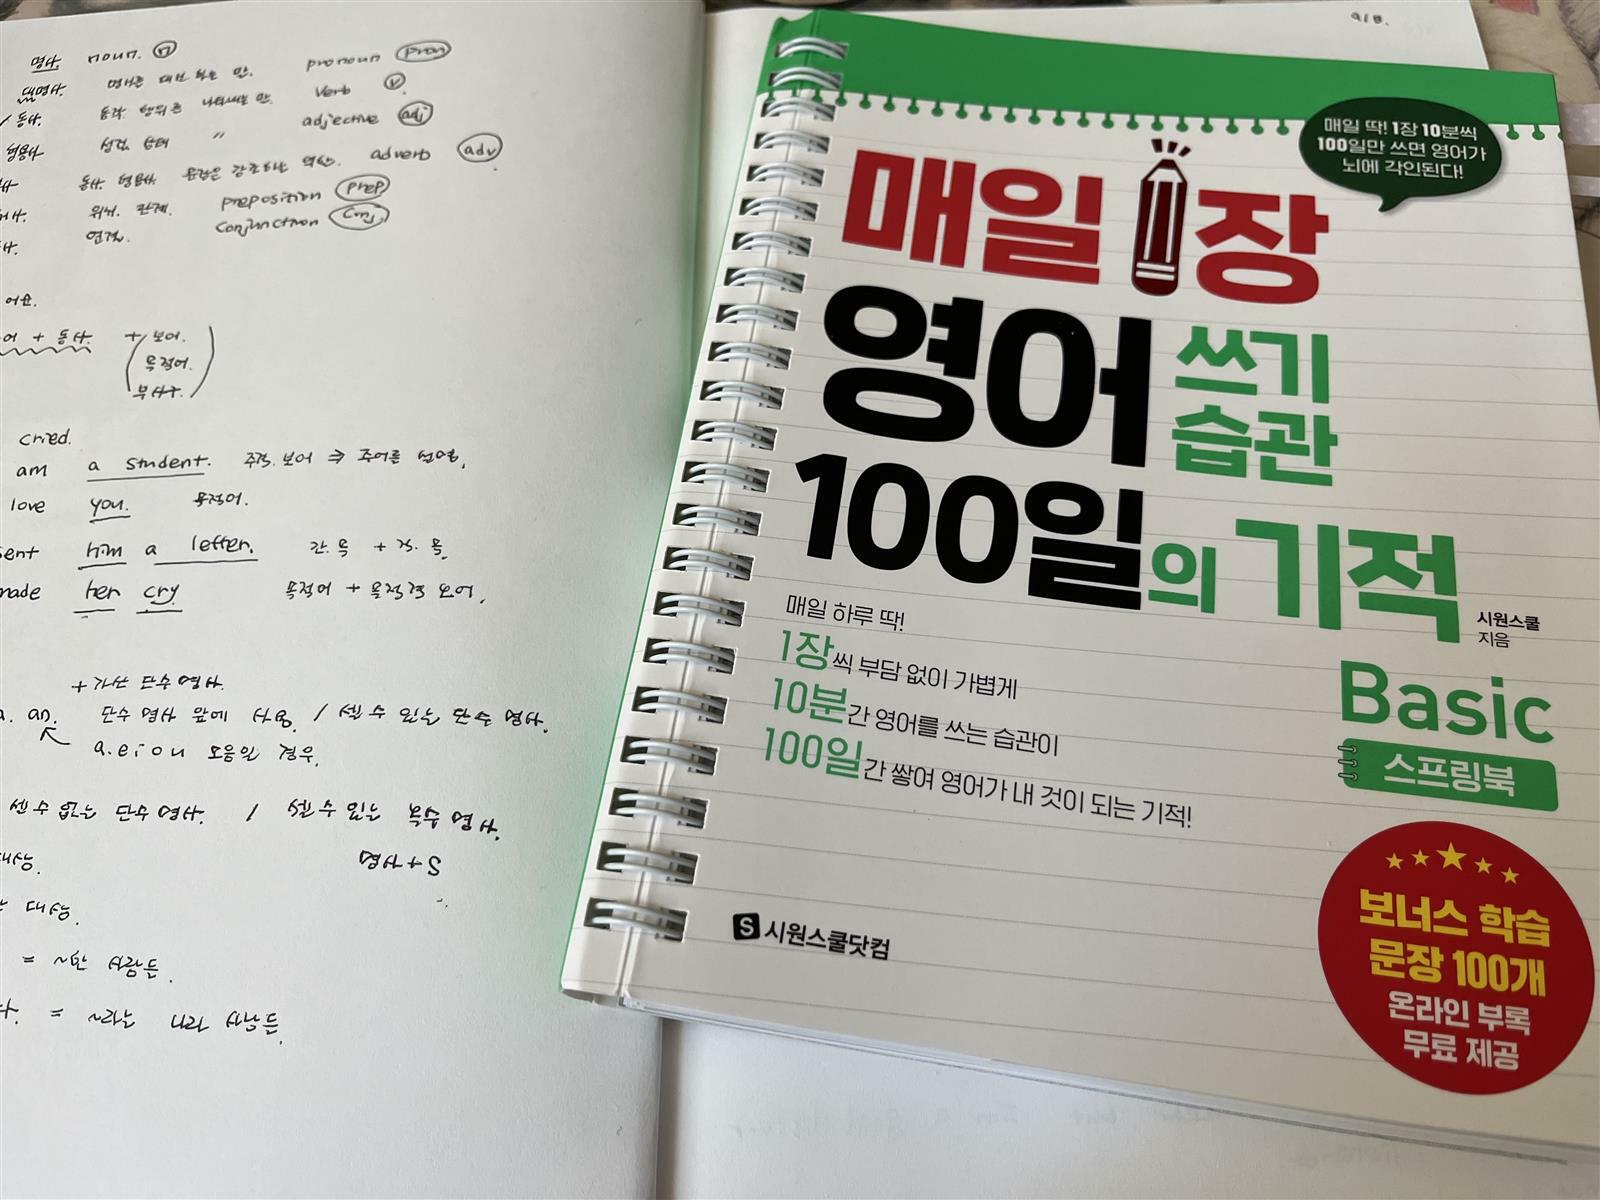 명사. noun. n
대명사. 명사를 대신 하는 말. pronoun pron
동사. 동작. 행위를 나타내는 말. verb v
형용사 성질. 상태 〃 adjective adj
동사. 형용사. 문장을 강조하는 역할. adverb adv
위치. 관계. preposition prep
연결. conjunction conj,
+ 동사. + 보어.
목적어.
부사구.
cried.
am a student. 주격.보어 ⇒ 주어를 설명.
love you. 목적어.
sent him a letter. 간.목 + 직.목.
made her cry 목적어 + 목적격 보어.
+ 가산 단수 명사.
a. an. 단수 명사 앞에 사용. / 셀 수 있는 단수 명사.
a.e.i o u 모음일 경우.
셀 수 없는 단수 명사. / 셀 수 있는 복수 명사.
명사+S
대상.
대상.
= ~한 사람들.
= ~라는 나라 사람들.
9/8.
매일 딱! 1장 10분씩
100일만 쓰면 영어가
뇌에 각인된다!
매일 1장
영어 쓰기
습관
100일의 기적
시원스쿨
지음
매일 하루 딱!
1장씩 부담 없이 가볍게
10분간 영어를 쓰는 습관이
100일간 쌓여 영어가 내 것이 되는 기적!
Basic
스프링북
보너스 학습
문장 100개
온라인 부록
무료 제공
S 시원스쿨닷컴